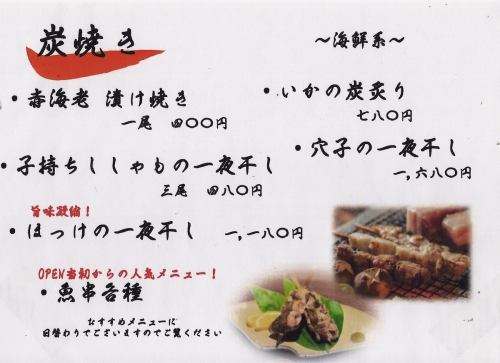 炭焼き
～海鮮系～
・赤海老 漬け焼き
一尾 四〇〇円
・いかの炭炙り
七八〇円
・子持ちししゃもの一夜干し
三尾 四八〇円
・穴子の一夜干し
一,六八〇円
旨味凝縮！
・ほっけの一夜干し 一,一八〇円
OPEN当初からの人気メニュー！
・魚串各種
おすすめメニューに
日替わりでございますのでご覧ください